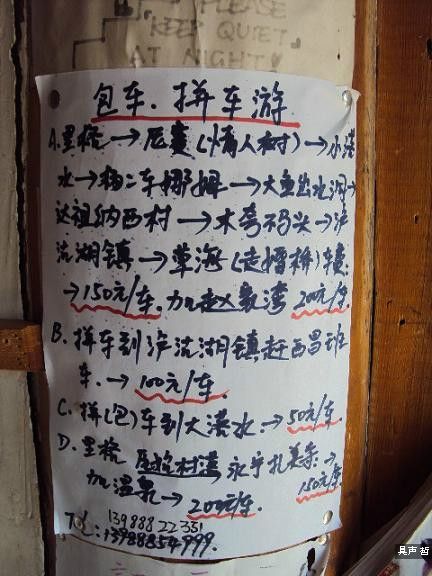 PLEASE
KEEP QUIET
AT NIGHT!
包车.拼车游
A.里格→尼赛(情人树)→小洛
水→杨二车娜姆→大鱼出水洞→
达祖纳西村→木夸码头→泸
沽湖镇→草海(走婚桥)车费
→150元/车.加赵家湾 200元/车
B.拼车到泸沽湖镇赶西昌班
车.→100元/车.
C.拼(包)车到大洛水→50元/车
D.里格 永宁扎美寺→
150元/车
加温泉→200元/车.
TEL:13988822351
13988854999.
具声 哲